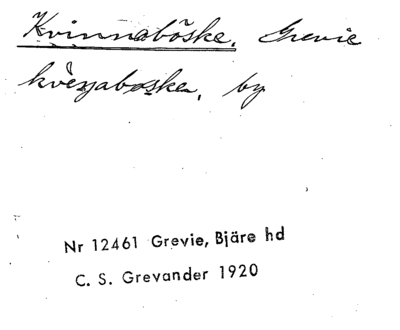 Kvinnaböske. Grevie
kvèŋabøske, by
Nr 12461 Grevie, Bjäre hd
C. S. Grevander 1920